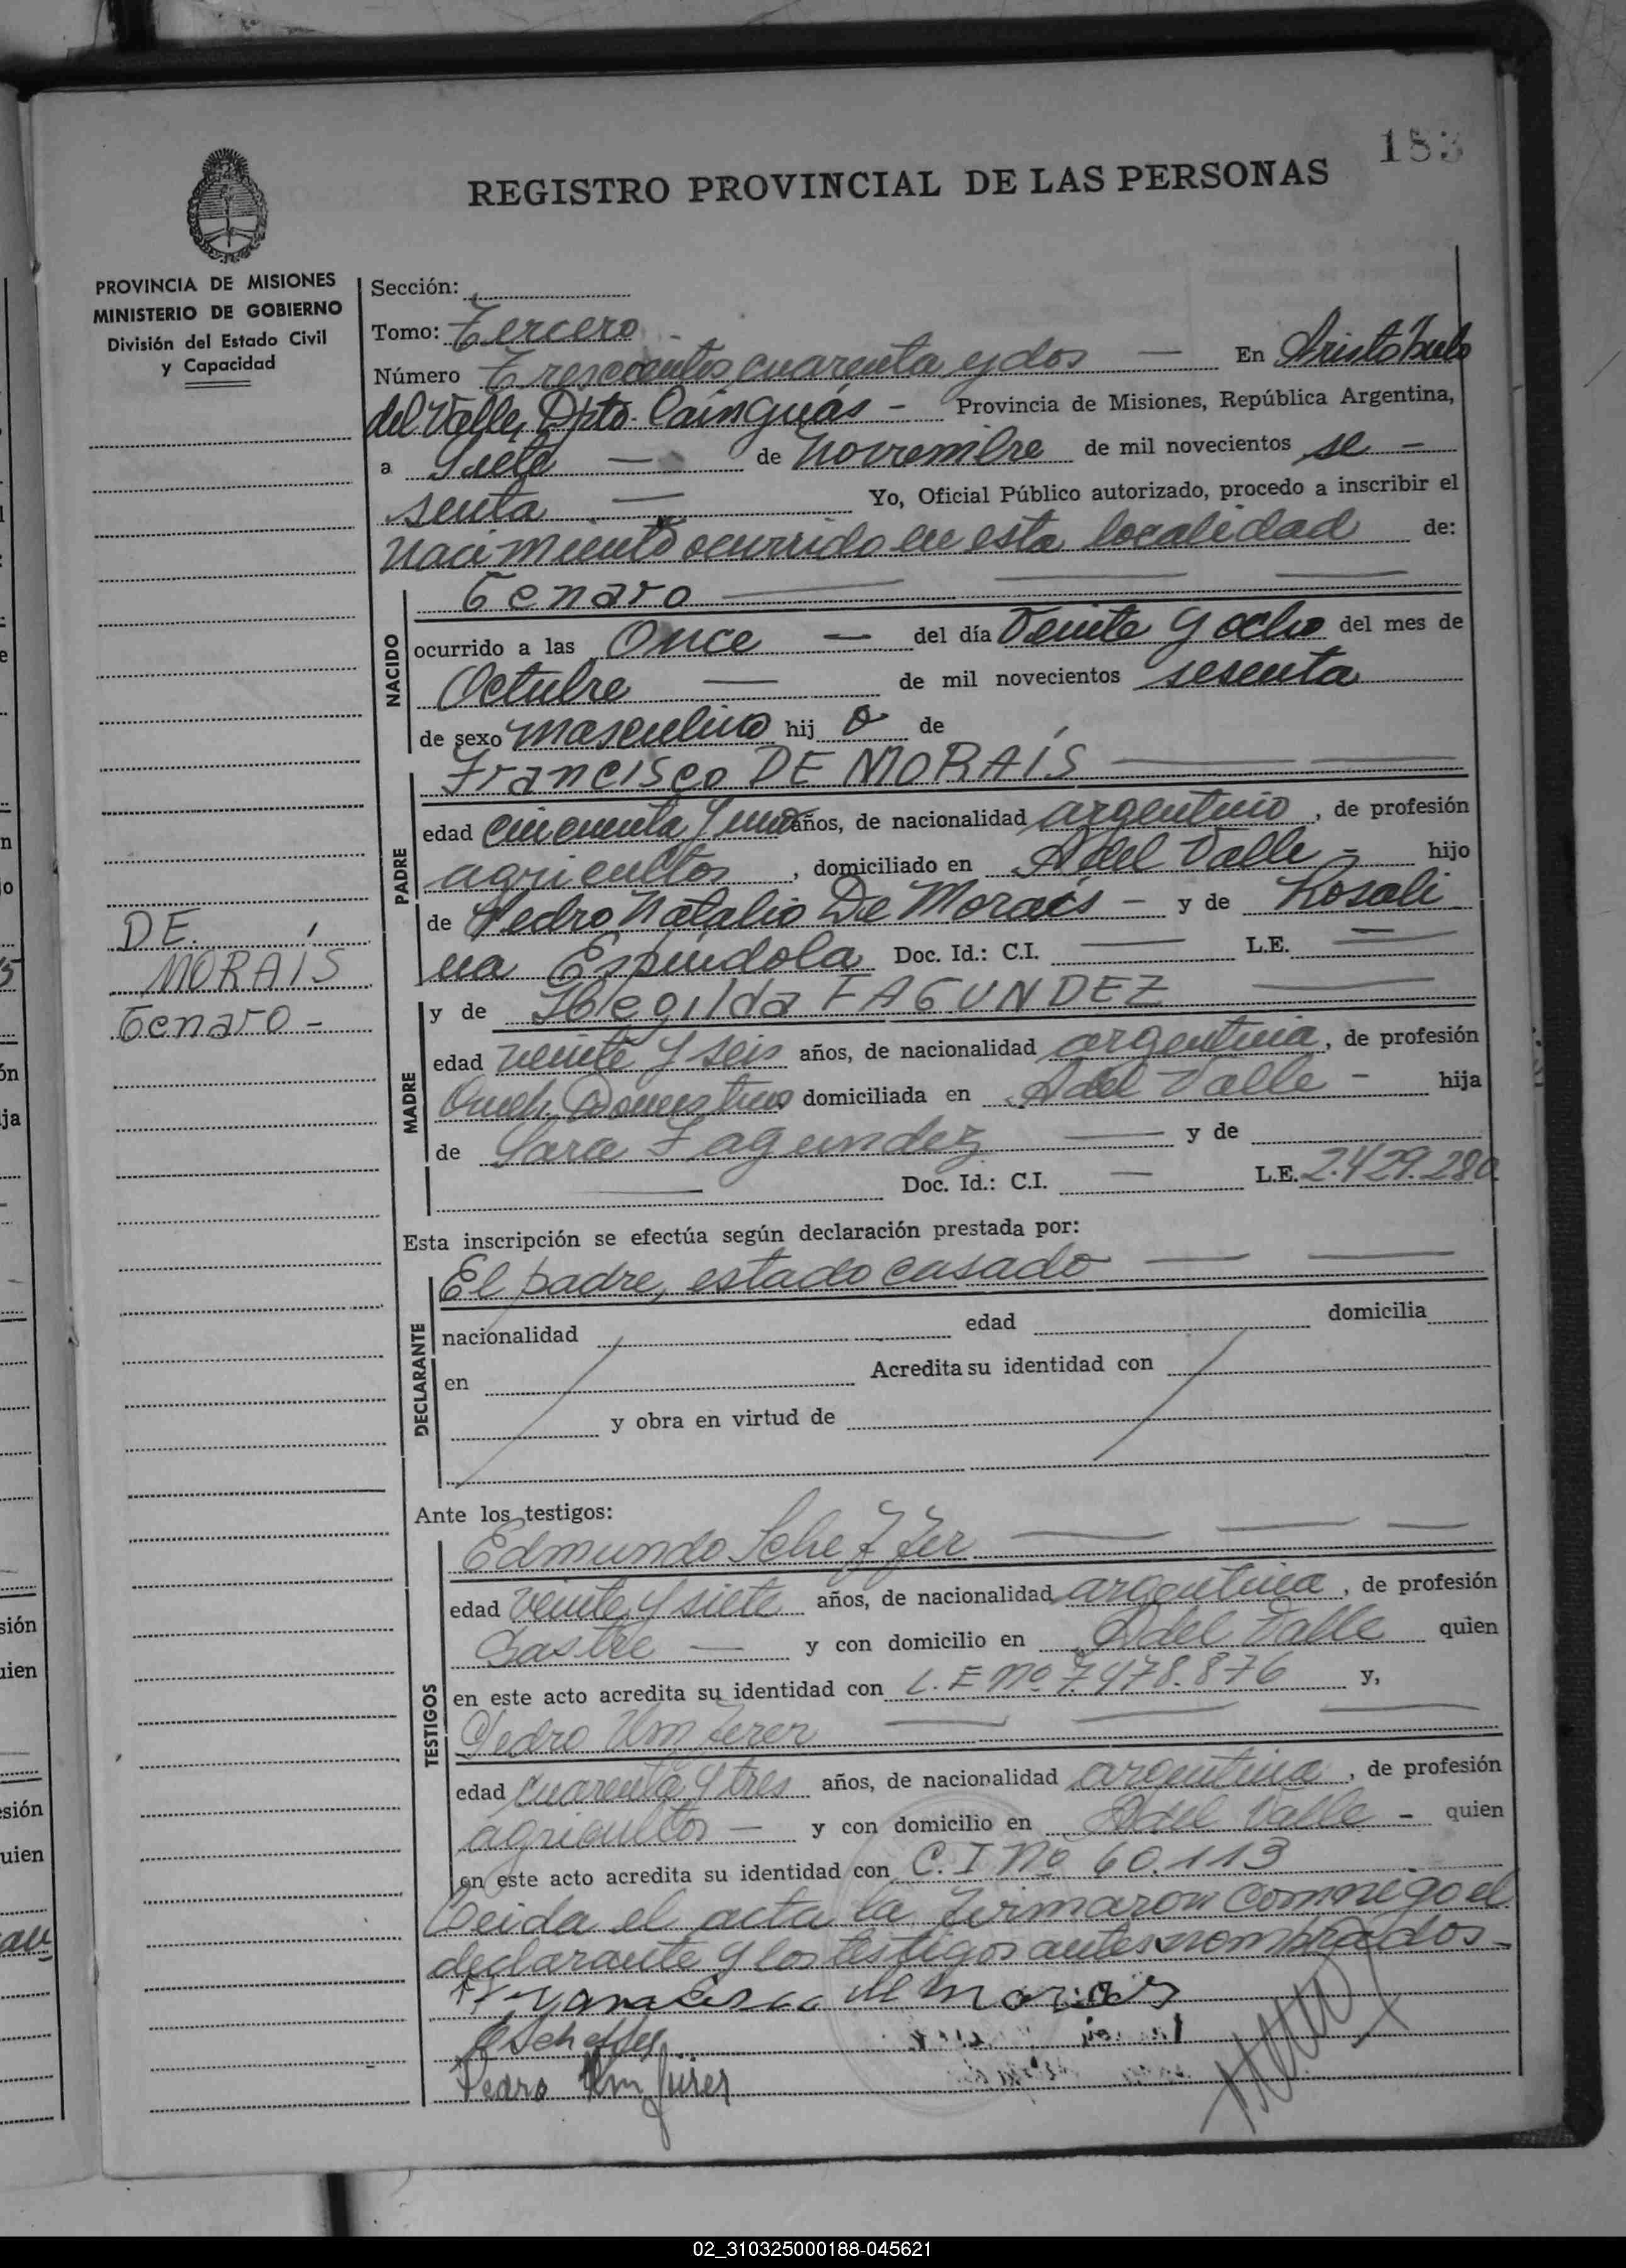 183
REGISTRO PROVINCIAL DE LAS PERSONAS
PROVINCIA DE MISIONES
MINISTERIO DE GOBIERNO
División del Estado Civil
y Capacidad
DE
MORAÍS
Genaro -
Sección:
Tomo: Tercero
Número Trescientos cuarenta y dos — En Aristóbulo
del Valle, Dpto. Cainguás - Provincia de Misiones, República Argentina,
a Siete — de Noviembre de mil novecientos se -
senta — Yo, Oficial Público autorizado, procedo a inscribir el
Nacimiento ocurrido en esta localidad de:
NACIDO
Genaro — — —
ocurrido a las Once — del día Veinte y ocho del mes de
Octubre — de mil novecientos sesenta
de sexo masculino hij o de
PADRE
Francisco DE MORAÍS — —
edad cincuenta y uno años, de nacionalidad argentino, de profesión
agricultor, domiciliado en A del Valle - hijo
de Pedro Natalio De Moraís - y de Rosali
na Espíndola Doc. Id.: C.I. — L.E. —
MADRE
y de Hegilda FAGUNDEZ —
edad veinte y seis años, de nacionalidad argentina, de profesión
Queh. Domesticos domiciliada en A del Valle - hija
de Sara Fagundez — y de
— Doc. Id.: C.I. — L.E. 2.429.280
Esta inscripción se efectúa según declaración prestada por:
DECLARANTE
El padre, estado casado — —
nacionalidad edad domicilia
en Acredita su identidad con
y obra en virtud de
Ante los testigos:
TESTIGOS
Edmundo Scheffer — — —
edad veinte y siete años, de nacionalidad argentina, de profesión
Sastre — y con domicilio en A del Valle quien
en este acto acredita su identidad con L.E Nº 7.478.876 y,
Pedro — — —
edad cuarenta y tres años, de nacionalidad argentina, de profesión
agricultor — y con domicilio en A del Valle - quien
en este acto acredita su identidad con C.I Nº 60.113
Leida el acta la firmaron conmigo el
declarante y los testigos antes nombrados -
Francisco de Morais
E Scheffer
Pedro
02_310325000188-045621